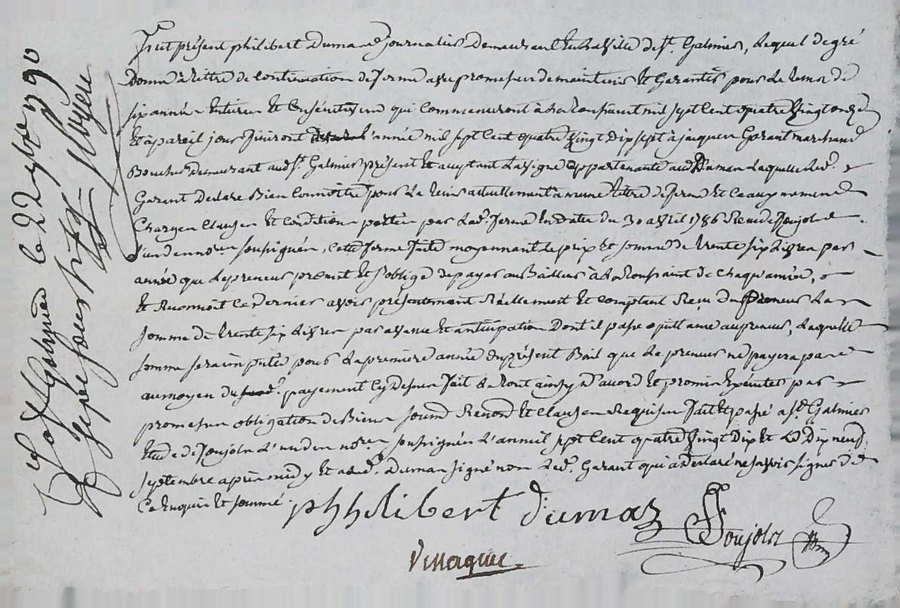 Fut présent philibert Dumas journalier Demeurant en la ville de St. Galmier, Lequel de gré
Donne a titre de Continuation de ferme avec promesse de maintenir et Garantir pour Le tems de
six année Entieres et Consécutives qui Commenceront à La toussaint mil sept Cent quatre Vingt onze
Et a pareil jour finiront L'année mil sept Cent quatre Vingt Dix sept à jacques Garant marchand
Boucher demeurant aud. St. Galmier présent et acceptant La vigne appartenante aud. Dumas Laquelle led.
Garant Declare Bien Connoitre pour La tenir actuellement a titre de ferme et Ce aux mêmes
Charges Clauses et Condition portée par Lad. ferme En date du 30 avril 1786 Reçu de Soujolz
L'un des nores soussignés, Cette ferme faite moyennant Le prix et somme de trente six Livres par
année que Le preneur promet et s'oblige de payer au Bailleur à La toussaint de Chaque année,
Et Reconnoit Ce dernier avoir présentement Réellement et Comptant Reçu du preneur La
somme de trente six Livres par avance et anticipation Dont il passe quittance au preneur, Laquelle
somme sera imputée pour La premiere année du présent Bail que Le preneur ne payera pas
au moyen du payement Cy dessus fait Le tout ainsy D'acord et promis Executer par
promesse obligation de Biens soumd Renond et Clauses Requises fait et passé a St. Galmier
Etude de Soujolz L'un des nores soussignés L'an mil sept Cent quatre Vingt Dix et Le Dix neuf
septembre après midy et a led. Dumas signé non Led. Garant qui a declaré ne savoir signer de
Ce Enquis et sommé.
phhilibert dumaz
Soujolz
Villecquie
St. Galmier le 22 7bre 1790